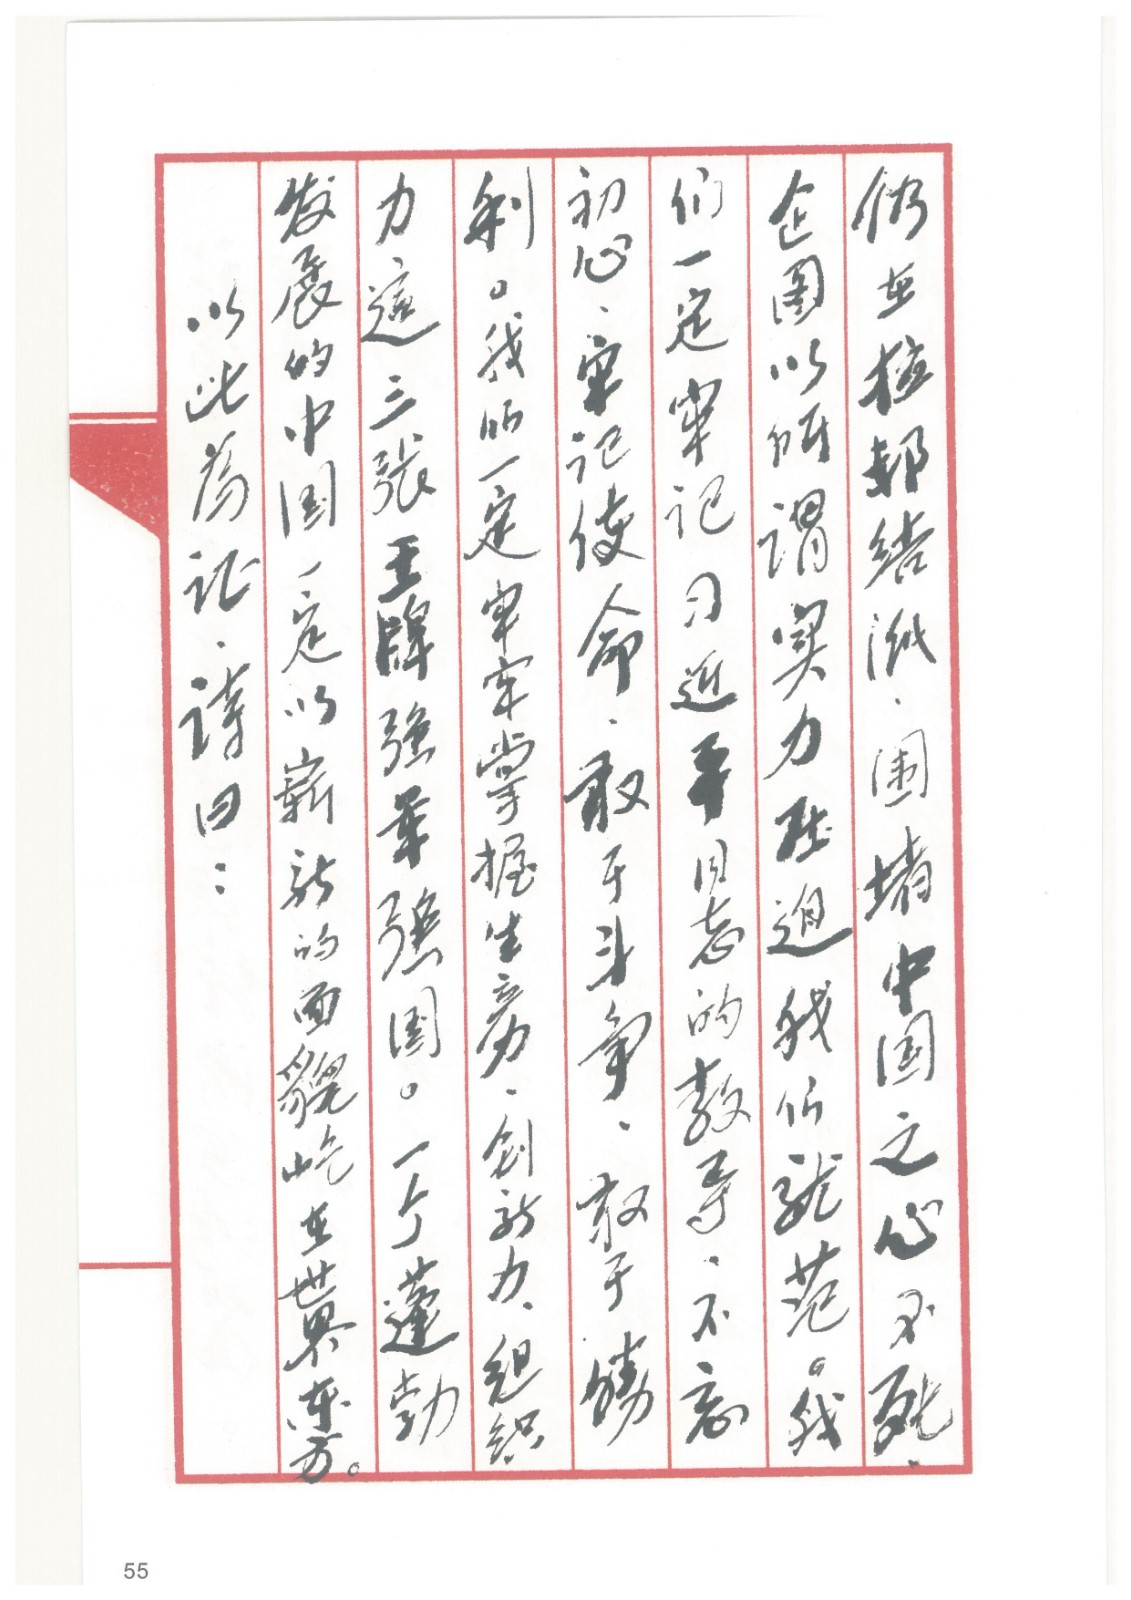 仍在拉帮结派、围堵中国之心不死、
企图以所谓实力胁迫我们就范。我
们一定牢记习近平同志的教导、不忘
初心、牢记使命、敢于斗争、敢于勝
利。我们一定牢牢掌握生产力、创新力、组织
力這三张王牌强军强国。一个蓬勃
发展的中国一定以崭新的面貌屹立世界东方。
以此為记、诗曰：
55